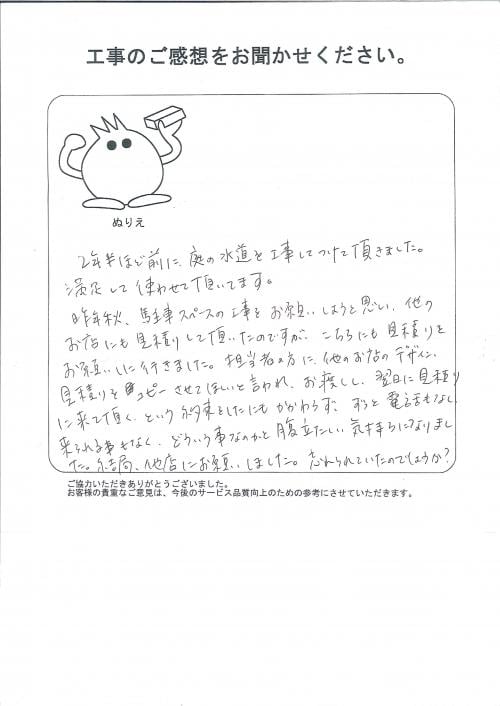 工事のご感想をお聞かせください。
ぬりえ
2年半ほど前に、庭の水道を工事してつけて頂きました。
満足して使わせて頂いてます。
昨年秋、駐車スペースの工事をお願いしようと思い、他の
お店にも見積りして頂いたのですが、こちらにも見積りを
お願いしに行きました。担当者の方に、他のお店のデザイン、
見積りをコピーさせてほしいと言われ、お渡しし、翌日に見積り
に来て頂く、という約束をしたにもかかわらず、ずっと電話もなし、
来られる事もなく、どういう事なのかと腹立たしい気持ちになりまし
た。結局、他店にお願いしました。忘れられていたのでしょうか?
ご協力いただきありがとうございました。
お客様の貴重なご意見は、今後のサービス品質向上のための参考にさせていただきます。